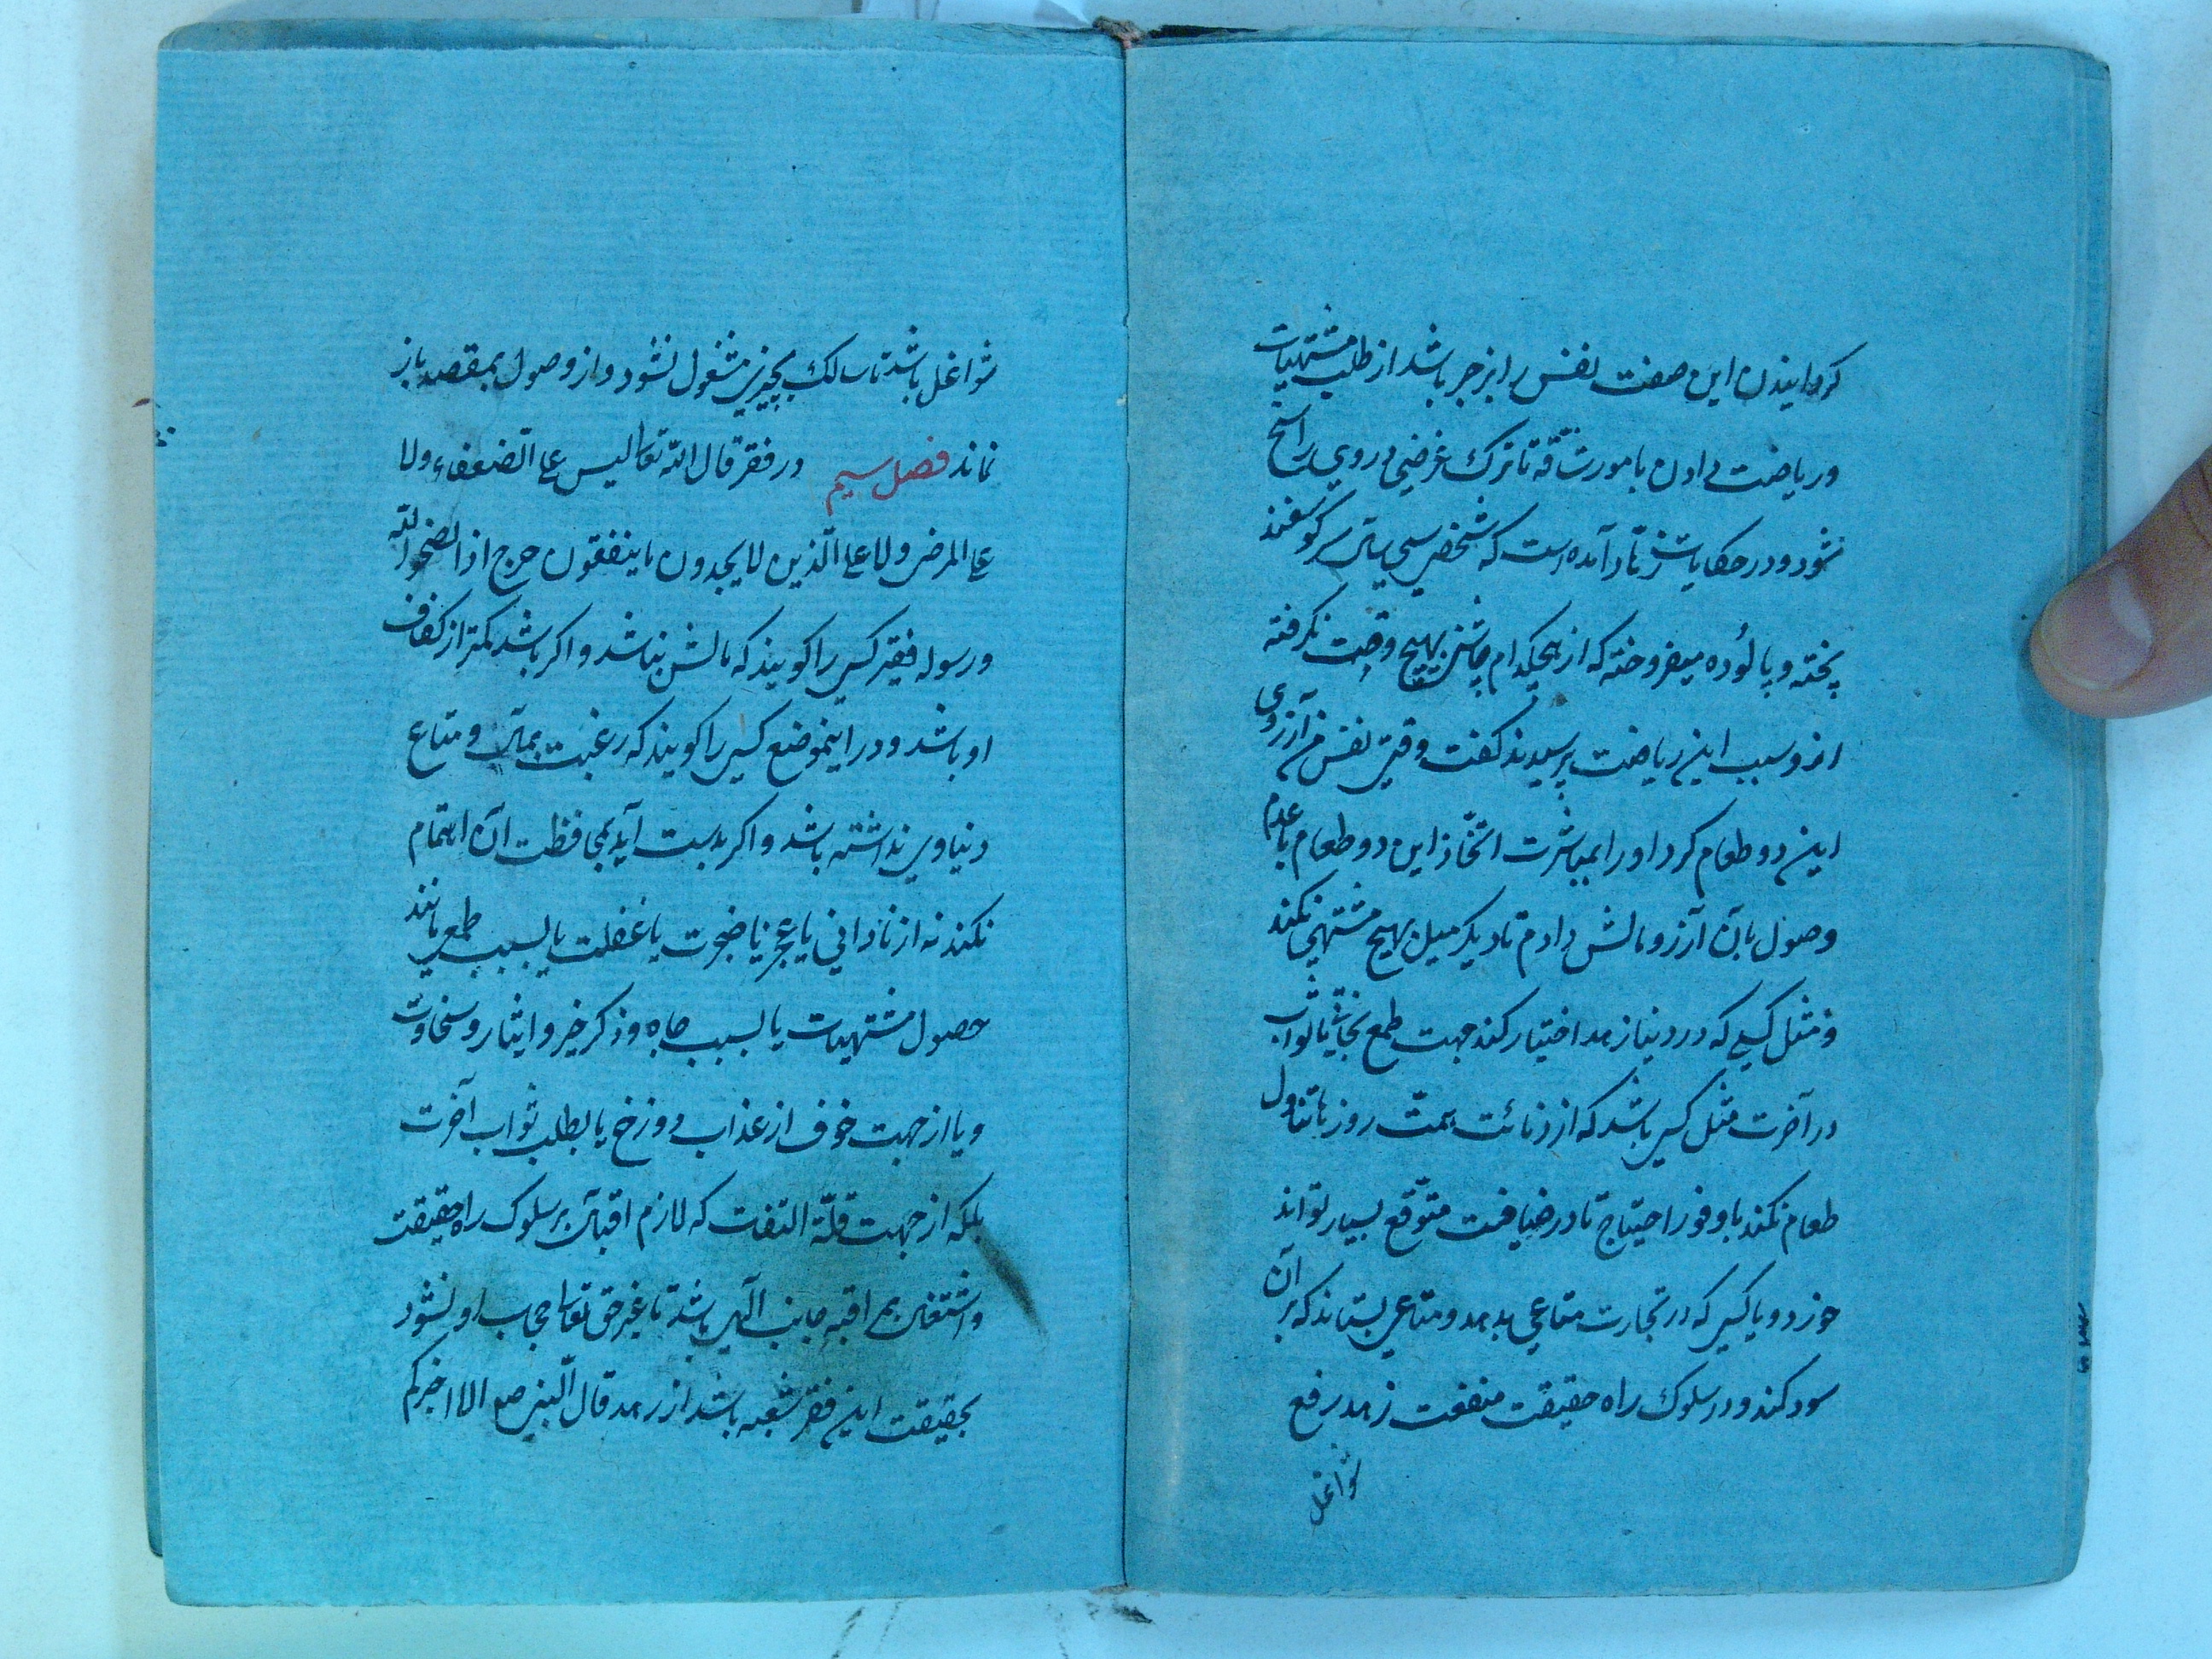 کردانیدن این صفت نفس را بزجر باشد از طلب مشتهیات
و ریاضت دادن بامور شاقه تا ترک غرضی در وی راسخ
شود و در حکایات زهاد آمده است که شخصی سی سال سر کوسفند
پخته و پالوده میفروخته که از هیچکدام چاشنی بهیچ وقت نکرفته
ازو سبب این ریاضت پرسیدند کفت وقتی نفس من آرزوی
این دو طعام کرد او را بمباشرت اتخاذ این دو طعام با عدم
وصول بآن آرزو مالش دادم تا دیکر میل بهیچ مشتهی نکند
و مثل کسی که در دنیا زهد اختیار کند جهت طمع نجات یا ثواب
در آخرت مثل کسی باشد که از دنائت همت روزها تناول
طعام نکند با وفور احتیاج تا در ضیافت متوقع بسیار تواند
خورد و یا کسی که در تجارت متاعی بدهد و متاعی بستاند که بر آن
سود کند و در سلوک راه حقیقت منفعت زهد رفع
شواغل
شواغل باشد تا سالک بچیزی مشغول نشود و از وصول بمقصد باز
نماند فصل سیم در فقر قال الله تعالی لیس علی الضعفاء ولا
علی المرضی ولا علی الذین لا یجدون ما ینفقون حرج اذا نصحوا لله
ورسوله فقیر کسی را کویند که مالش نباشد و اکر باشد کمتر از کفاف
او باشد و در اینموضع کسی را کویند که رغبت بمال و متاع
دنیاوی نداشته باشد و اکر بدست آید بمحافظت آن اهتمام
نکند نه از نادانی یا عجز یا ضجرت یا غفلت یا بسبب طمعی مانند
حصول مشتهیات یا بسبب جاه و ذکر خیر و ایثار و سخاوت
و یا از جهت خوف از عذاب دوزخ یا بطلب ثواب آخرت
بلکه از جهت قلة التفات که لازم اقبال بر سلوک راه حقیقت
و اشتغال بمراقبه جانب الهی باشد تا غیر حق تعالی حجاب او نشود
بحقیقت این فقر شعبه باشد از زهد قال النبی صلعم الا اخبرکم